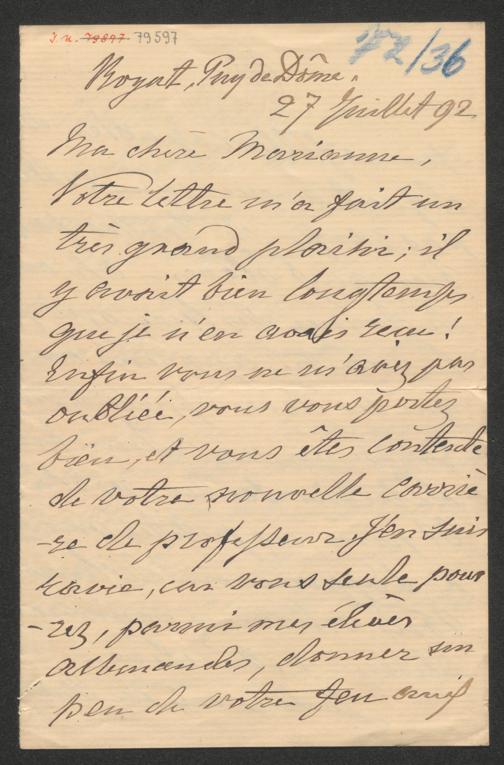 I.N. 79897 79597
72/36
Royat, Puy de Dôme.
27 Juillet 92
Ma chère Marianne,
Votre lettre m'a fait un
très grand plaisir; il
y avait bien longtemps
que je n'en avais reçu!
Enfin vous ne m'avez pas
oubliée, vous vous portez
bien, et vous êtes contente
de votre nouvelle carriè
-re de professeur. J'en suis
ravie, car vous seule pour
-rez, parmi mes élèves
allemandes, donner un
peu de votre feu